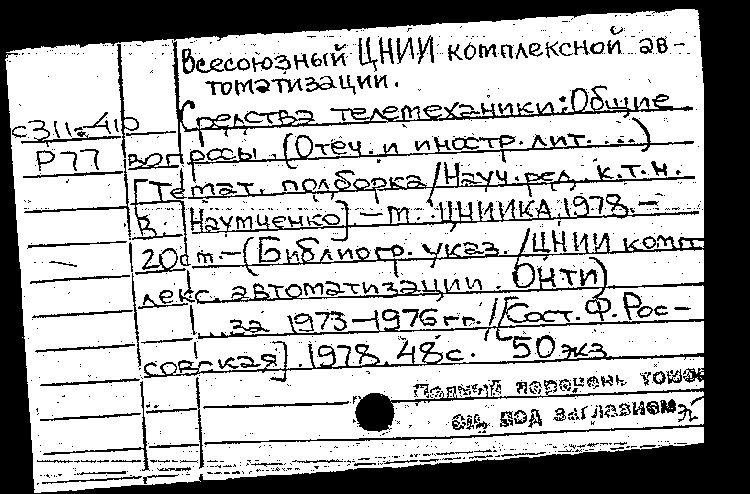 Всесоюзный ЦНИИ комплексной ав-
томатизации.
с311-410 Средства телемеханики: Общие
Р77 вопросы. (Отеч. и иностр. лит. ...)
[Темат. подборка/Науч. ред. к.т.н.
В. Наумченко]. – М.: ЦНИИКА, 1978. –
20см – (Библиогр. указ. /ЦНИИ комп
лекс. автоматизации. ОНТИ)
...за 1973–1976 гг. //[Сост. Ф. Рос-
совская]. 1978. 48 с. 50 экз
Полный перечень томов
см. под заглавием